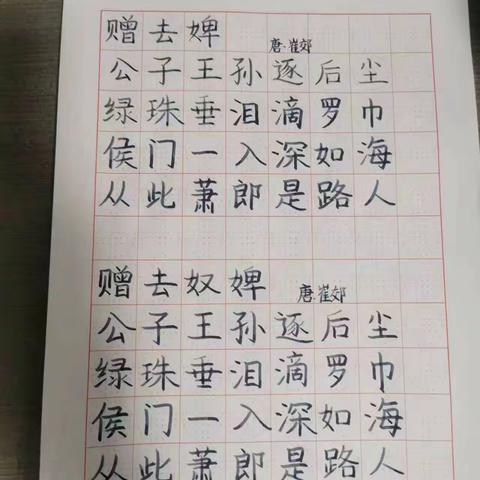 赠去婢
唐·崔郊
公子王孙逐后尘
绿珠垂泪滴罗巾
侯门一入深如海
从此萧郎是路人
赠去奴婢
唐·崔郊
公子王孙逐后尘
绿珠垂泪滴罗巾
侯门一入深如海
从此萧郎是路人